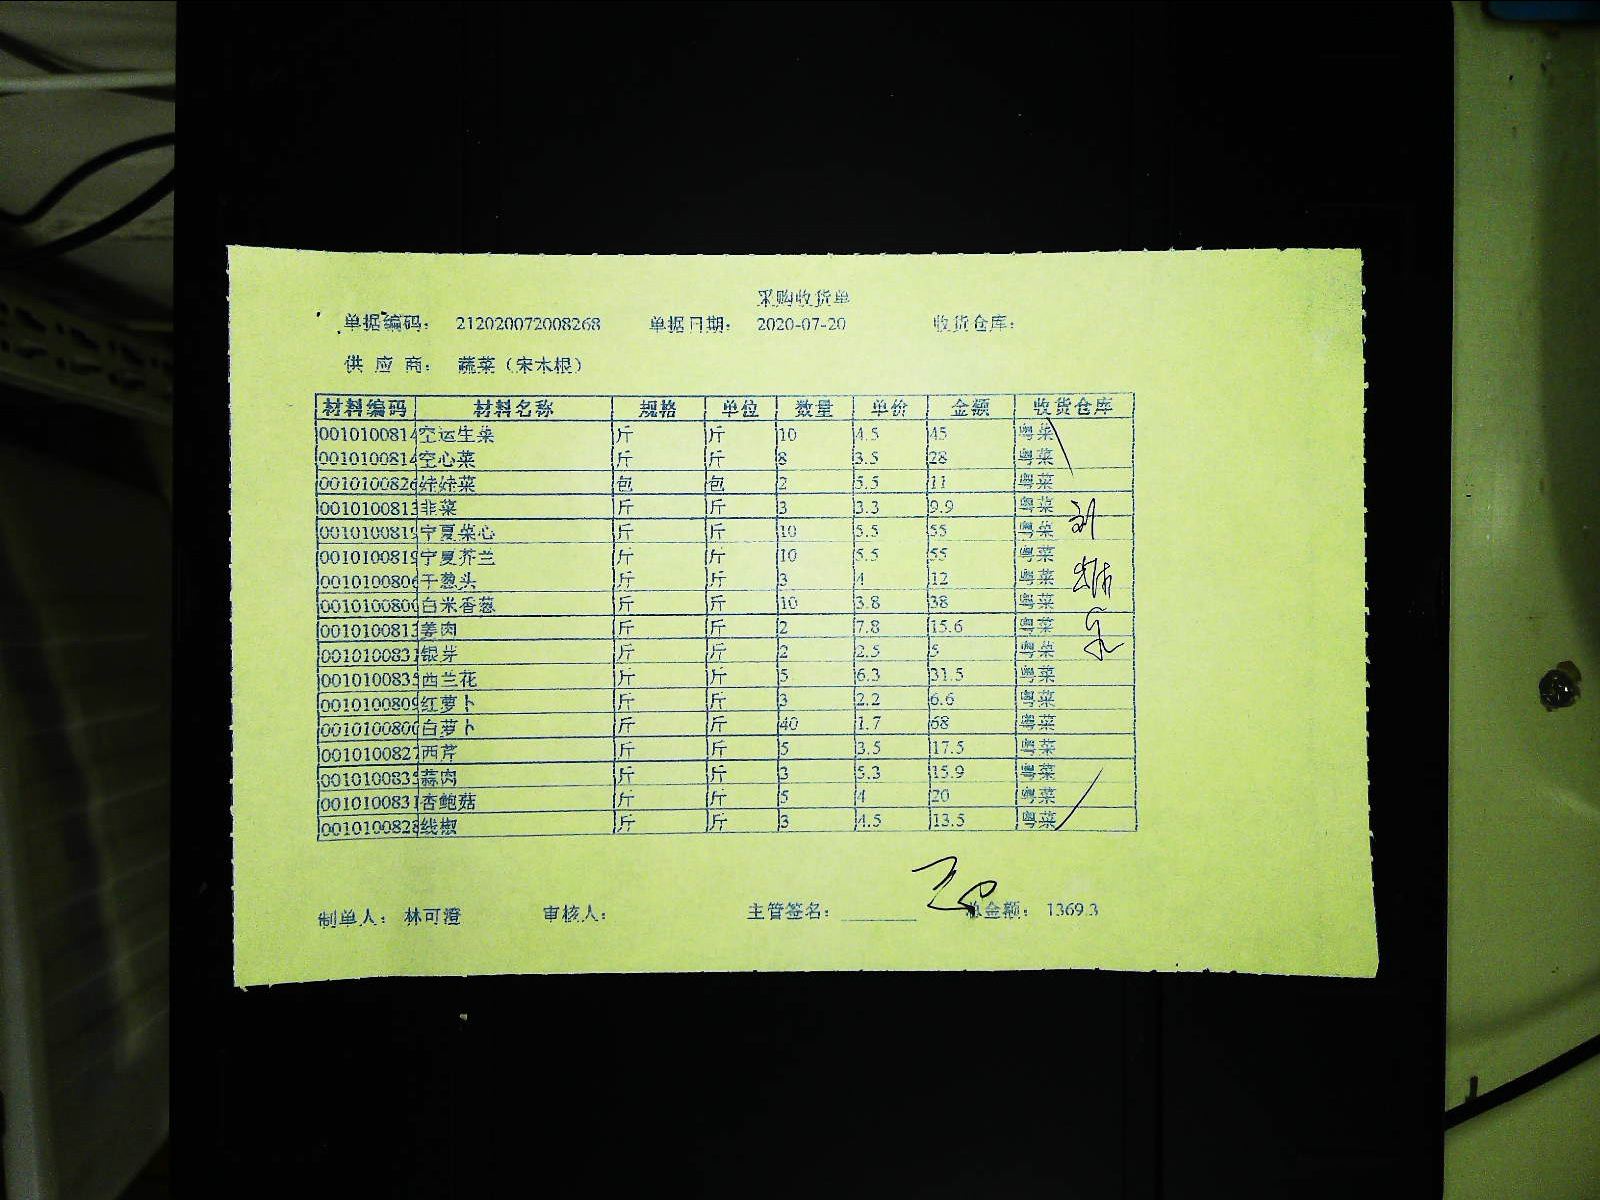 采购收货单
单据编码： 212020072008268 单据日期： 2020-07-20 收货仓库：
供 应 商： 蔬菜（宋木根）
材料编码 材料名称 规格 单位 数量 单价 金额 收货仓库
0010100814 空运生菜 斤 斤 10 4.5 45 粤菜
0010100814 空心菜 斤 斤 8 3.5 28 粤菜
001010082 娃娃菜 包 包 2 5.5 11 粤菜
001010081 韭菜 斤 斤 3 3.3 9.9 粤菜
001010081 宁夏菜心 斤 斤 10 5.5 55 粤菜
001010081 宁夏芥兰 斤 斤 10 5.5 55 粤菜
001010080 干葱头 斤 斤 3 4 12 粤菜
001010080 白米香葱 斤 斤 10 3.8 38 粤菜
001010081 姜肉 斤 斤 2 7.8 15.6 粤菜
001010083 银芽 斤 斤 2 2.5 5 粤菜
001010083 西兰花 斤 斤 5 6.3 31.5 粤菜
001010080 红萝卜 斤 斤 3 2.2 6.6 粤菜
001010080 白萝卜 斤 斤 40 1.7 68 粤菜
001010082 西芹 斤 斤 5 3.5 17.5 粤菜
001010083 蒜肉 斤 斤 3 5.3 15.9 粤菜
001010083 杏鲍菇 斤 斤 5 4 20 粤菜
001010082 线椒 斤 斤 3 4.5 13.5 粤菜
制单人： 林可澄 审核人： 主管签名： 总金额： 1369.3